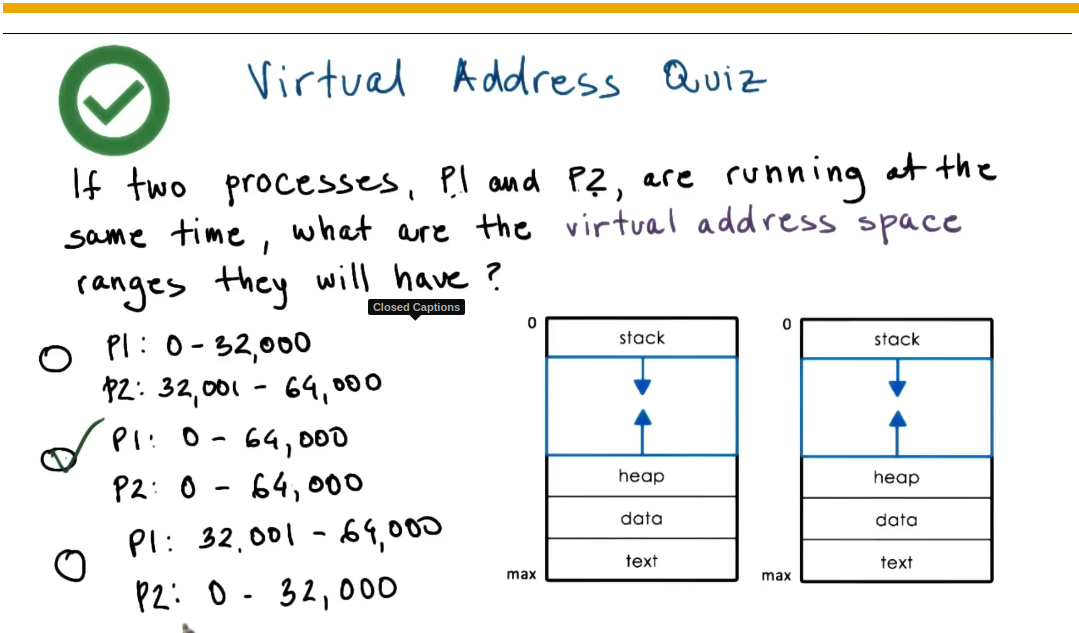 Virtual Address Quiz
If two processes, P1 and P2, are running at the
same time, what are the virtual address space
ranges they will have?
Closed Captions
P1: 0 - 32,000
P2: 32,001 - 64,000
P1: 0 - 64,000
P2: 0 - 64,000
P1: 32,001 - 64,000
P2: 0 - 32,000
0
stack
heap
data
text
max
0
stack
heap
data
text
max